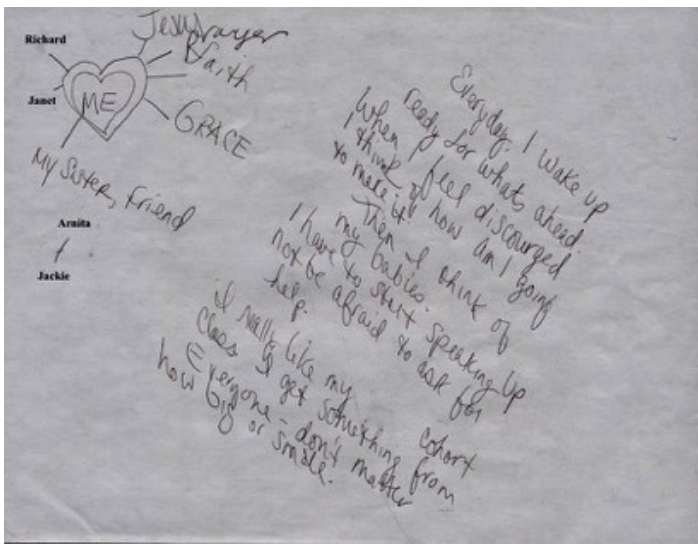 Jesus
Prayer
Richard
Faith
Janet
ME
GRACE
My Sister, Friend
Arnita
Jackie
Everyday, I wake up
ready for whats ahead.
When I feel discourged
I think of how am I going
to make it!
Then I think of
my babies.
I have to start speaking up
not be afraid to ask for
help.
I really like my cohort
class I get something from
Everyone - don't matter
how big or small.